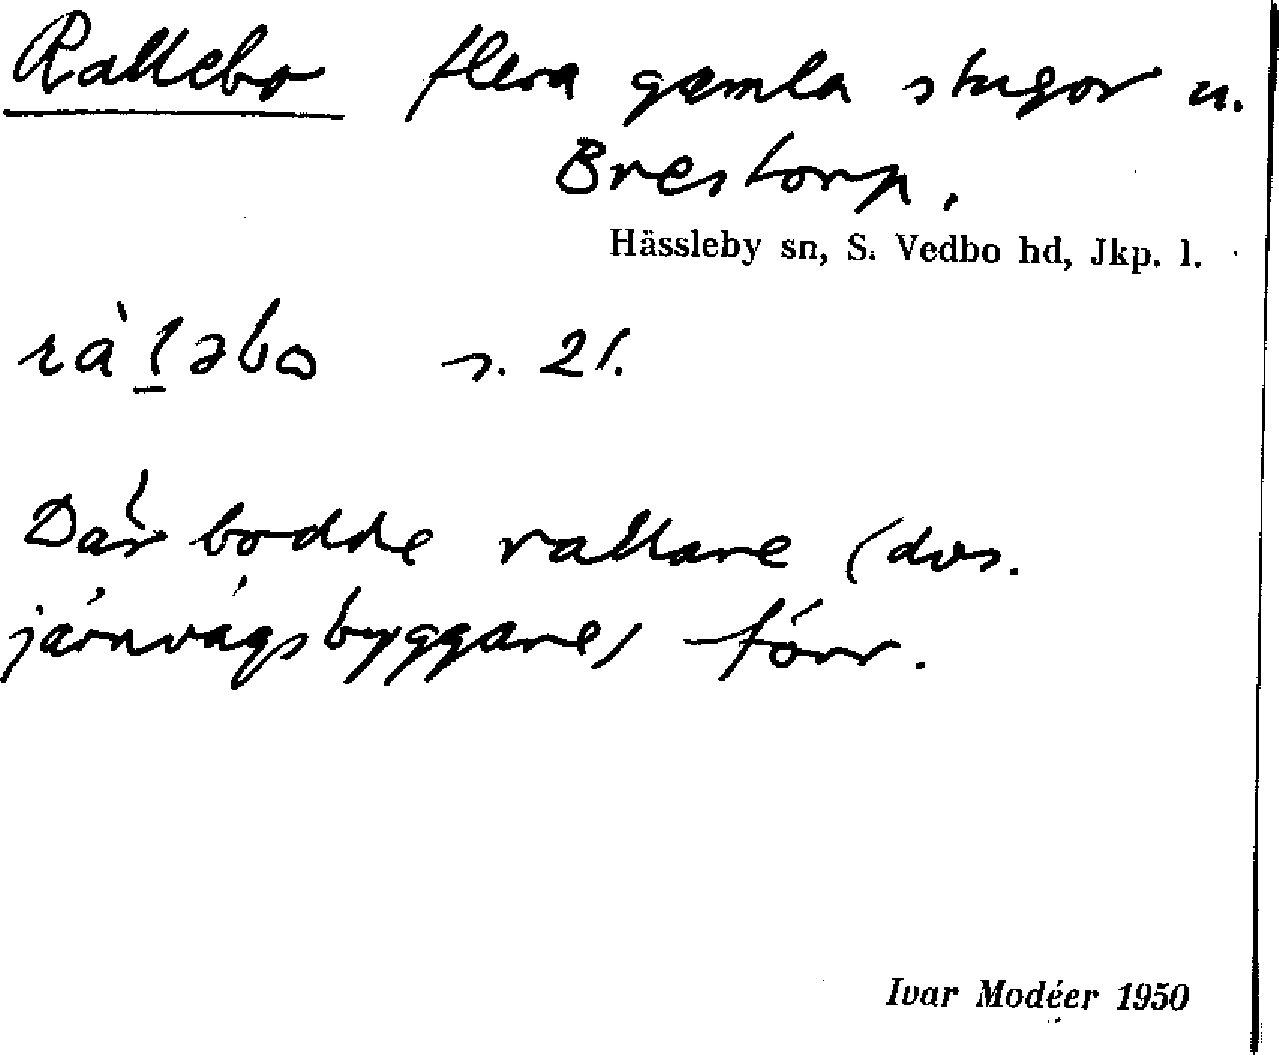 Rallebo flera gamla stugor u.
Brestorp.
Hässleby sn, S. Vedbo hd, Jkp. l.
ràl̠əbo s. 21.
Där bodde rallare (dvs.
järnvägsbyggare) förr.
Ivar Modéer 1950